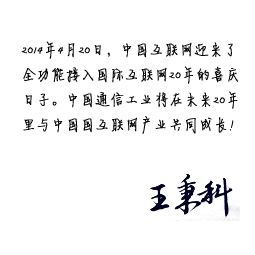 2014年4月20日，中国互联网迎来了
全功能接入国际互联网20年的喜庆
日子。中国通信工业将在未来20年
里与中国国互联网产业共同成长！
王秉科